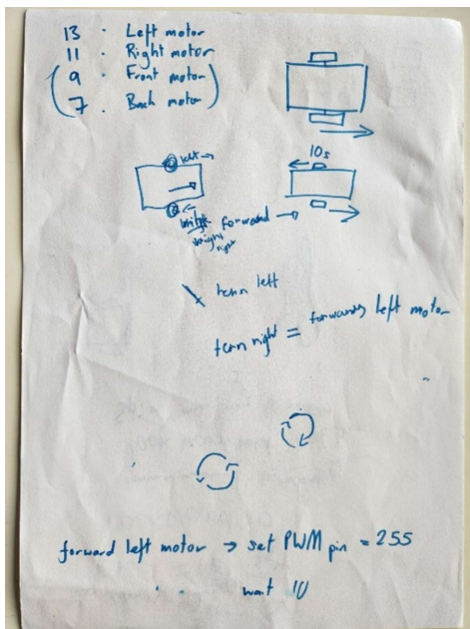 13 . Left motor
11 . Right motor
(9 . Front motor)
(7 . Back motor)
10s
left →
forward →
right
turn left
turn right = forwards left motor
forward left motor → set PWM pin = 255
wait 10